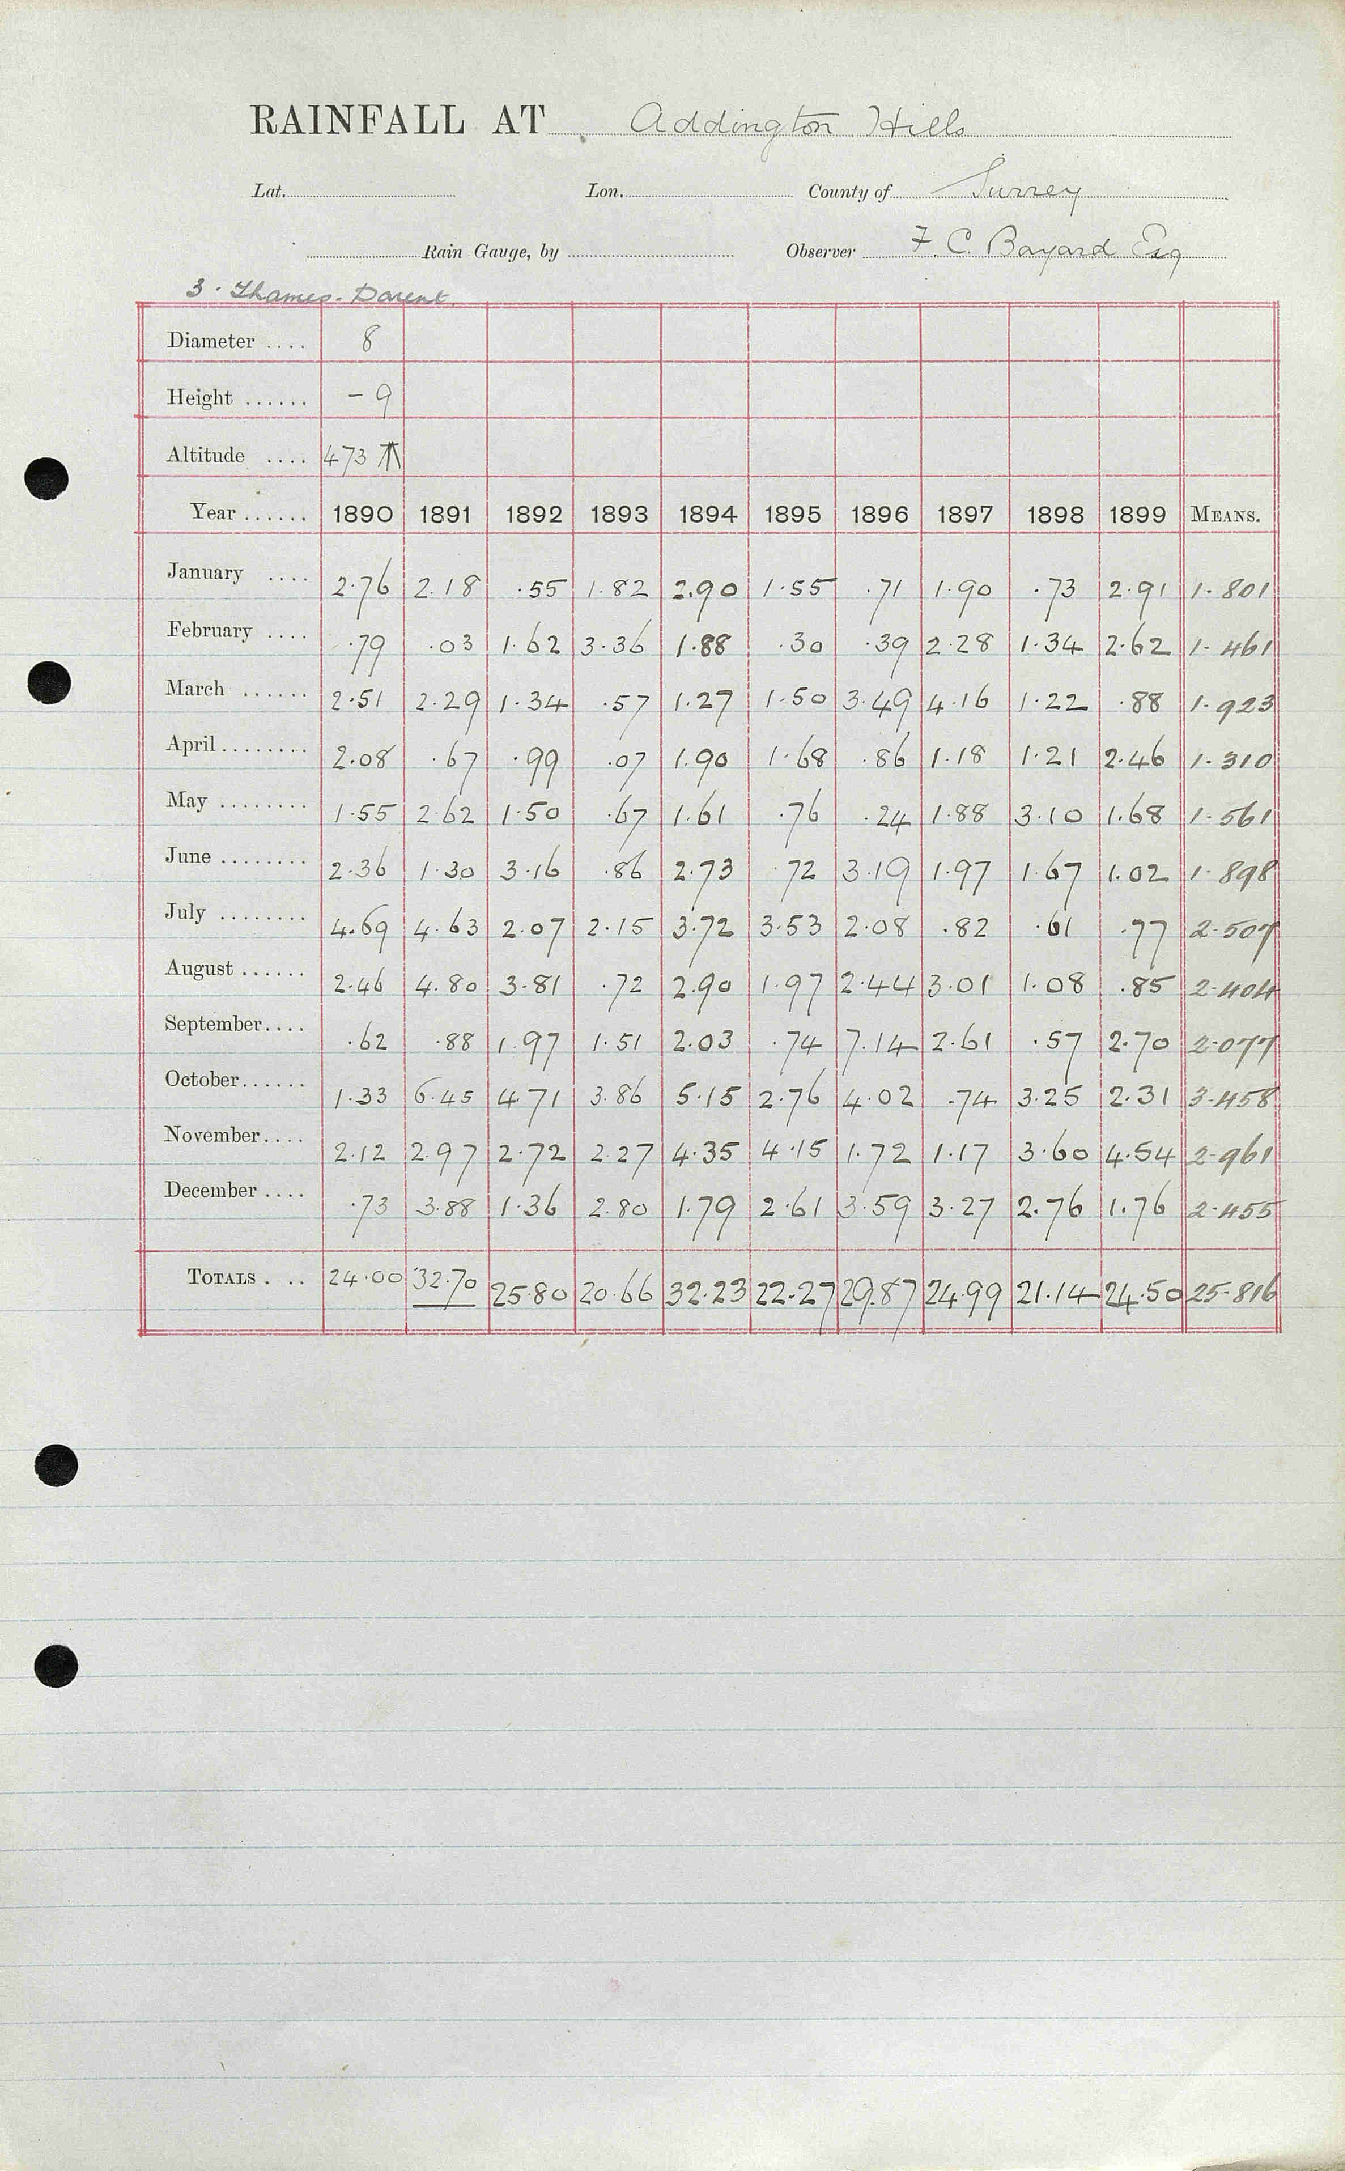 RAINFALL AT Addington Hills
Lat. Lon. County of Surrey
Rain Gauge, by Observer F. C. Bayard Esq
3. Thames. Darent
Diameter .... 8
Height ...... - 9
Altitude .... 473
Year ...... 1890 1891 1892 1893 1894 1895 1896 1897 1898 1899 MEANS.
January .... 2.76 2.18 .55 1.82 2.90 1.55 .71 1.90 .73 2.91 1.801
February .... .79 .03 1.62 3.36 1.88 .30 .39 2.28 1.34 2.62 1.461
March ...... 2.51 2.29 1.34 .57 1.27 1.50 3.49 4.16 1.22 .88 1.923
April ........ 2.08 .67 .99 .07 1.90 1.68 .86 1.18 1.21 2.46 1.310
May ........ 1.55 2.62 1.50 .67 1.61 .76 .24 1.88 3.10 1.68 1.561
June ........ 2.36 1.30 3.16 .86 2.73 .72 3.19 1.97 1.67 1.02 1.898
July ........ 4.69 4.63 2.07 2.15 3.72 3.53 2.08 .82 .61 .77 2.507
August ...... 2.46 4.80 3.81 .72 2.90 1.97 2.44 3.01 1.08 .85 2.404
September.... .62 .88 1.97 1.51 2.03 .74 7.14 2.61 .57 2.70 2.077
October...... 1.33 6.45 4.71 3.86 5.15 2.76 4.02 .74 3.25 2.31 3.458
November.... 2.12 2.97 2.72 2.27 4.35 4.15 1.72 1.17 3.60 4.54 2.961
December .... .73 3.88 1.36 2.80 1.79 2.61 3.59 3.27 2.76 1.76 2.455
TOTALS . .. 24.00 32.70 25.80 20.66 32.23 22.27 29.87 24.99 21.14 24.50 25.816